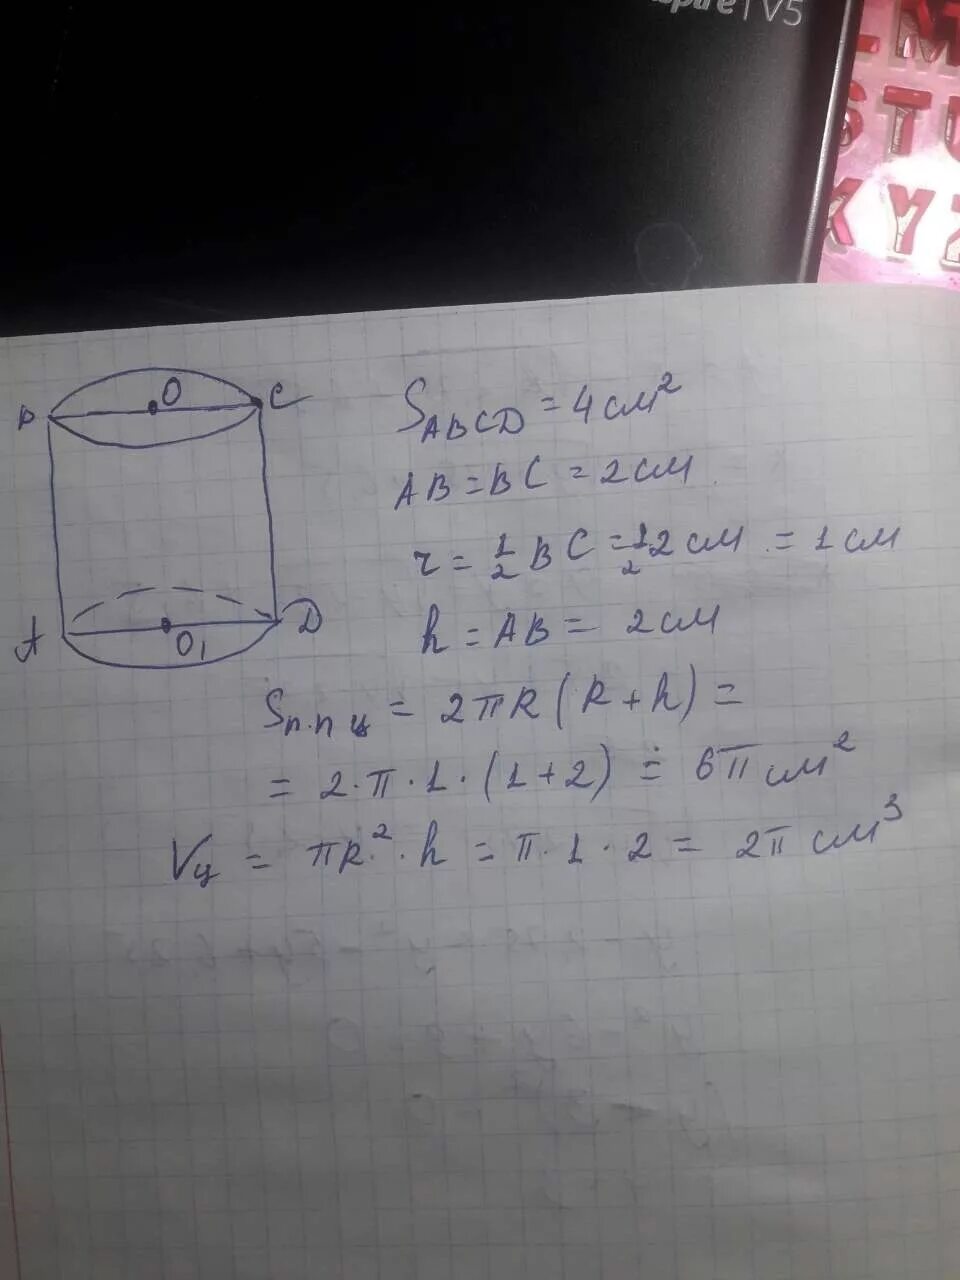 V5
STU
KYZ
B O C
A O₁ D
S_ABCD = 4 см²
AB = BC = 2 см
r = 1/2 BC = 1/2 2 см = 1 см
h = AB = 2 см
Sп.п ц = 2πR (R + h) =
= 2·π·1·(1+2) = 6π см²
Vц = πR²·h = π·1·2 = 2π см³